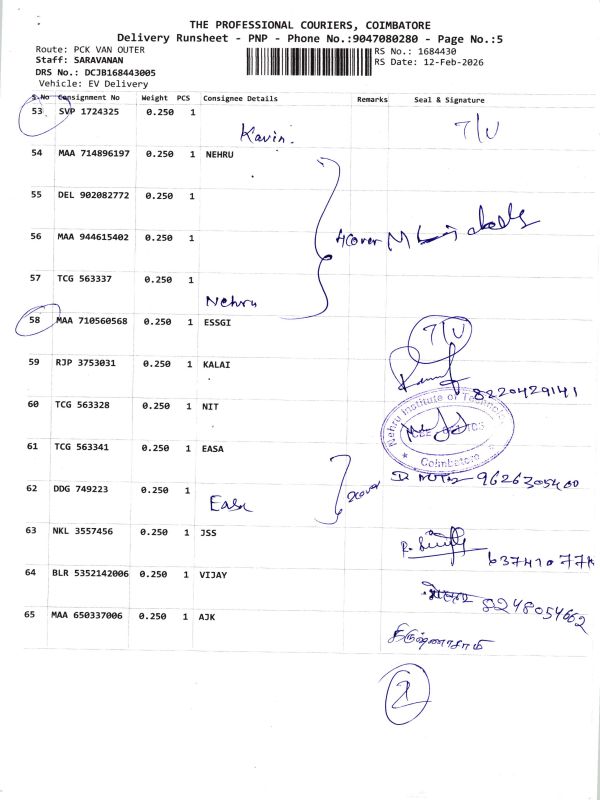 THE PROFESSIONAL COURIERS, COIMBATORE
Delivery Runsheet - PNP - Phone No.:9047080280 - Page No.:5
Route: PCK VAN OUTER
RS No.: 1684430
Staff: SARAVANAN
RS Date: 12-Feb-2026
DRS No.: DCJB168443005
Vehicle: EV Delivery
S.No Consignment No Weight PCS Consignee Details Remarks Seal & Signature
53 SVP 1724325 0.250 1 T/U
Kavin.
54 MAA 714896197 0.250 1 NEHRU
55 DEL 902082772 0.250 1
56 MAA 944615402 0.250 1
4cover
57 TCG 563337 0.250 1
Nehru
58 MAA 710560568 0.250 1 ESSGI T/U
59 RJP 3753031 0.250 1 KALAI
8220429141
60 TCG 563328 0.250 1 NIT
Nehru Institute of Technology
Coimbatore
61 TCG 563341 0.250 1 EASA
9626305400
62 DDG 749223 0.250 1 2cover
Easa
63 NKL 3557456 0.250 1 JSS
64 BLR 5352142006 0.250 1 VIJAY
8248054662
65 MAA 650337006 0.250 1 AJK
கிருஷ்ணசாமி